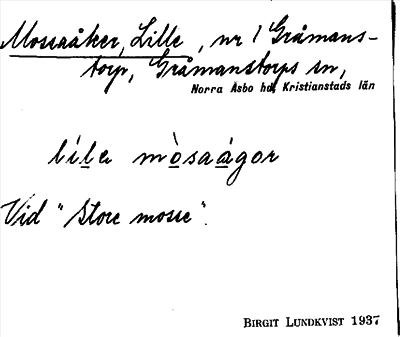 Mossaåker, Lille, nr 1 Gråmans-
torp, Gråmanstorps sn,
Norra Åsbo hd, Kristianstads län
líle mòsaágor
Vid "Store mosse".
BIRGIT LUNDKVIST 1937